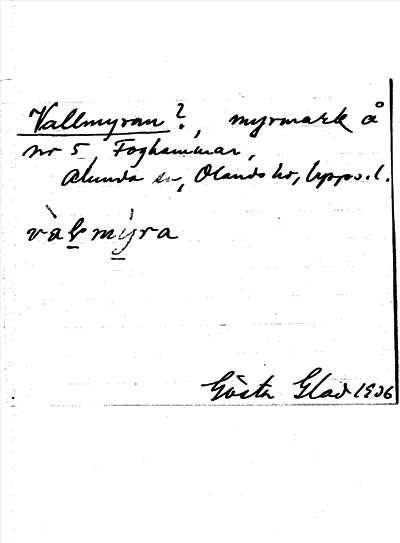 Vallmyran?, myrmark å
nr 5 Foghammar,
Alunda sn, Olands hd, Upps. l.
vàḷmỳra
Gösta Glad 1936